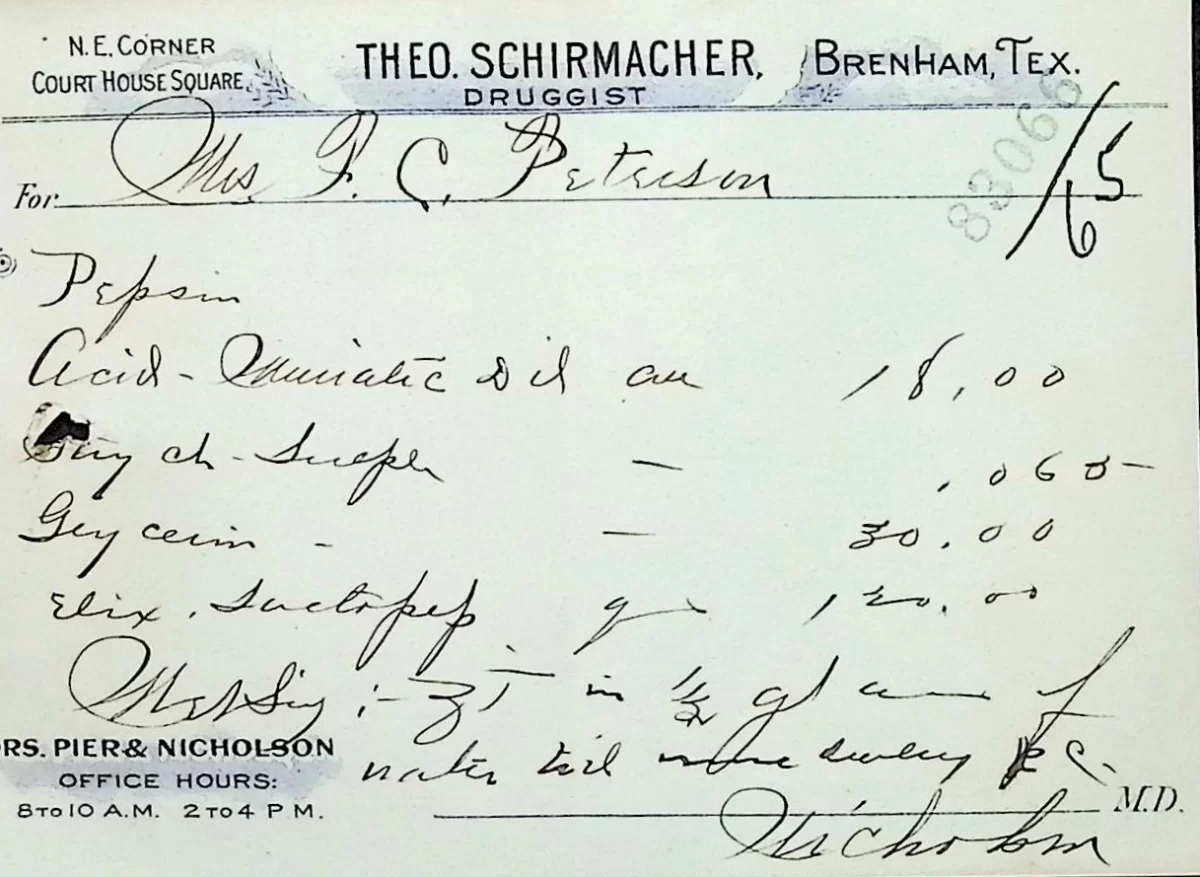 N.E. CORNER
COURT HOUSE SQUARE,
THEO. SCHIRMACHER,
DRUGGIST
BRENHAM, TEX.
83066
For Mrs. F. C. Peterson
6/5
Pepsin
Acid - Muriatic Dil aa 18,00
Strych - Sulph — ,065
Glycerin - — 30.00
Elix. Lactopep qs 120.00
M et Sig :- ʒ† in ½ gl
water P.C.
RS. PIER & NICHOLSON
OFFICE HOURS:
8 TO 10 A.M. 2 TO 4 P.M.
Nicholson M.D.